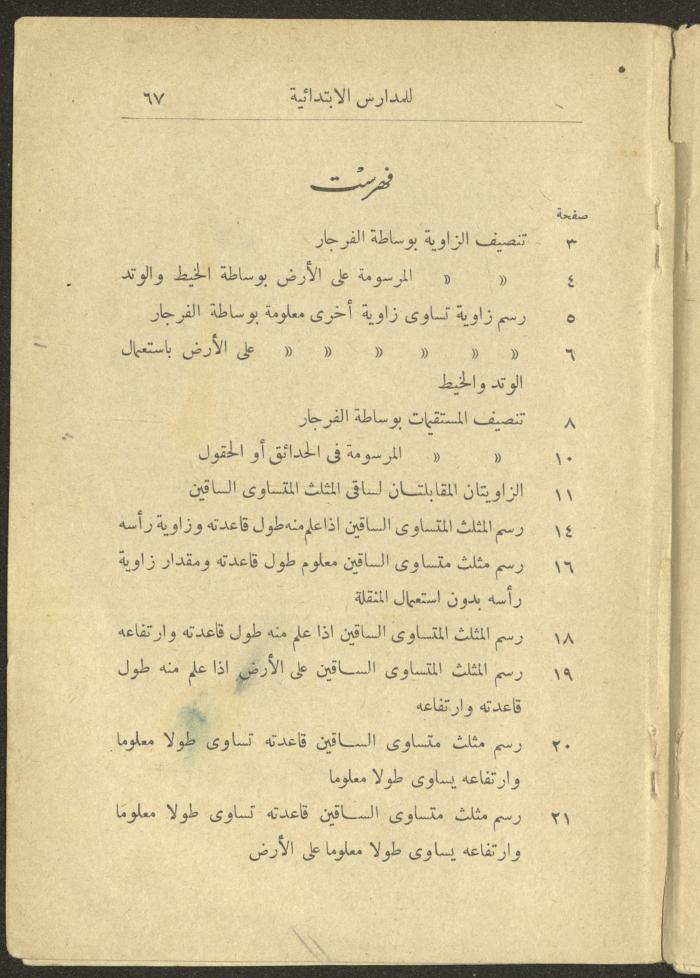 للمدارس الابتدائية ٦٧
فهرست
صفحة
٣ تنصيف الزاوية بوساطة الفرجار
٤ » » المرسومة على الأرض بوساطة الخيط والوتد
٥ رسم زاوية تساوى زاوية أخرى معلومة بوساطة الفرجار
٦ » » » » » » على الأرض باستعمال
الوتد والخيط
٨ تنصيف المستقيمات بوساطة الفرجار
١٠ » » المرسومة فى الحدائق أو الحقول
١١ الزاويتان المقابلتان لساقى المثلث المتساوى الساقين
١٤ رسم المثلث المتساوى الساقين اذا علم منه طول قاعدته وزاوية رأسه
١٦ رسم مثلث متساوى الساقين معلوم طول قاعدته ومقدار زاوية
رأسه بدون استعمال المنقلة
١٨ رسم المثلث المتساوى الساقين اذا علم منه طول قاعدته وارتفاعه
١٩ رسم المثلث المتساوى الساقين على الأرض اذا علم منه طول
قاعدته وارتفاعه
٢٠ رسم مثلث متساوى الساقين قاعدته تساوى طولا معلوما
وارتفاعه يساوى طولا معلوما
٢١ رسم مثلث متساوى الساقين قاعدته تساوى طولا معلوما
وارتفاعه يساوى طولا معلوما على الأرض